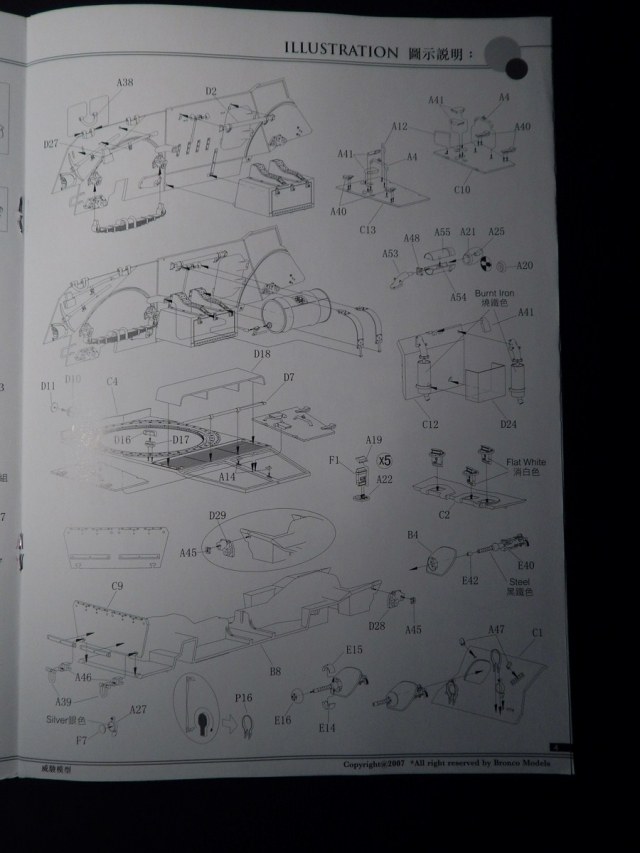 ILLUSTRATION 圖示說明：
A38
D2
D27
A41
A4
A12
A40
A41
A4
C10
A40
C13
A55
A21
A25
A48
A53
A20
A54
Burnt Iron
燒鐵色
A41
D18
D7
D11
D10
C4
C12
D24
D16
D17
A19
F1
X5
A14
A22
Flat White
消白色
C2
D29
A45
B4
E40
E42
Steel
黑鐵色
C9
D28
A45
B8
A47
C1
E15
A46
A39
P16
A27
Silver銀色
F7
E16
E14
4
威駿模型
Copyright@2007 *All right reserved by Bronco Models